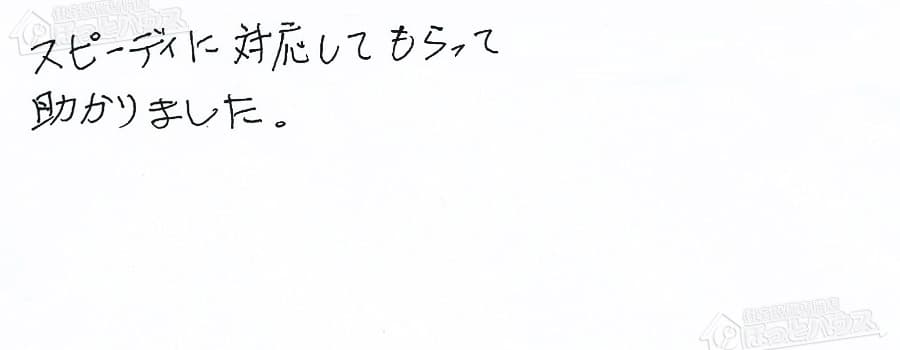 スピーディに対応してもらって
助かりました。
ほっとハウス